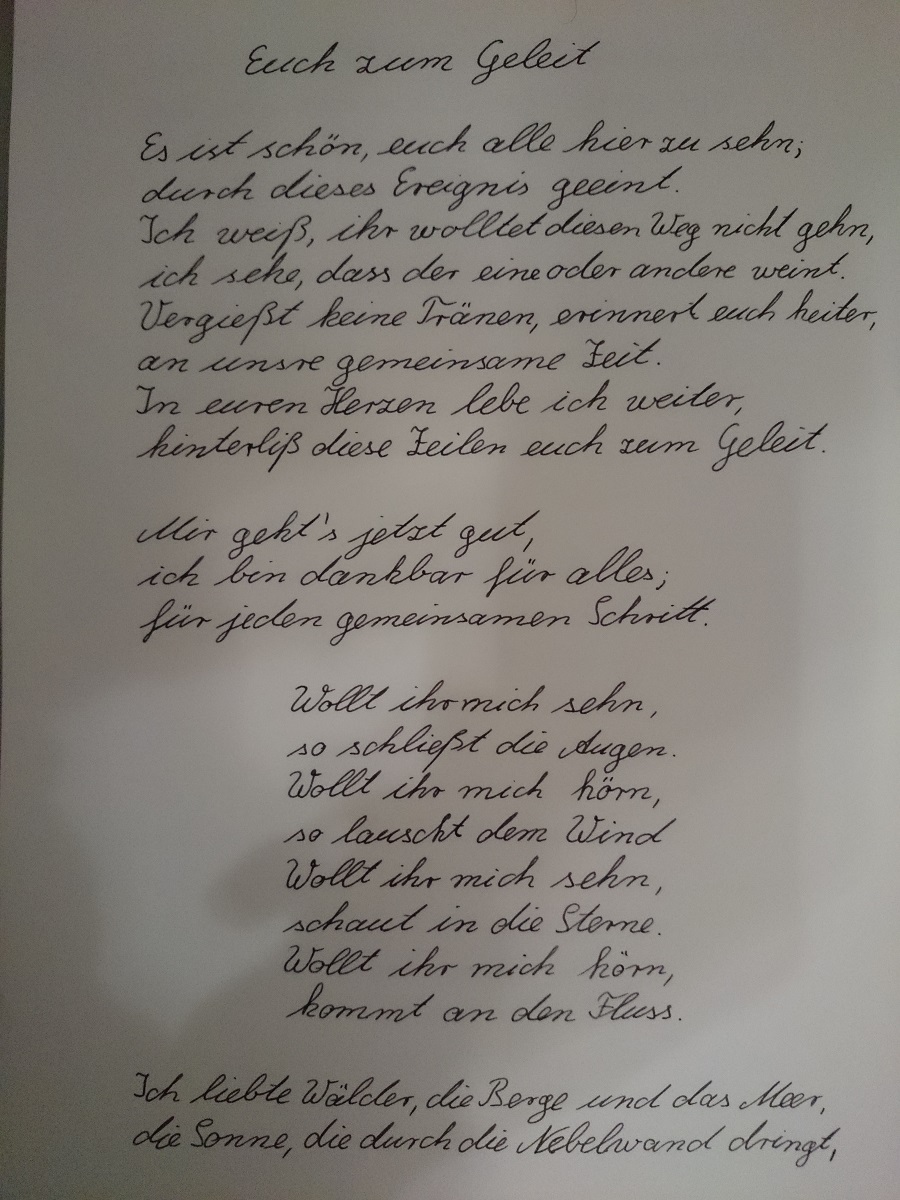 Euch zum Geleit
Es ist schön, euch alle hier zu sehn;
durch dieses Ereignis geeint.
Ich weiß, ihr wolltet diesen Weg nicht gehn,
ich sehe, dass der eine oder andere weint.
Vergießt keine Tränen, erinnert euch heiter,
an unsre gemeinsame Zeit.
In euren Herzen lebe ich weiter,
hinterliß diese Zeilen euch zum Geleit.
Mir geht's jetzt gut,
ich bin dankbar für alles;
für jeden gemeinsamen Schritt.
Wollt ihr mich sehn,
so schließt die Augen.
Wollt ihr mich hörn,
so lauscht dem Wind
Wollt ihr mich sehn,
schaut in die Sterne.
Wollt ihr mich hörn,
kommt an den Fluss.
Ich liebte Wälder, die Berge und das Meer,
die Sonne, die durch die Nebelwand dringt,